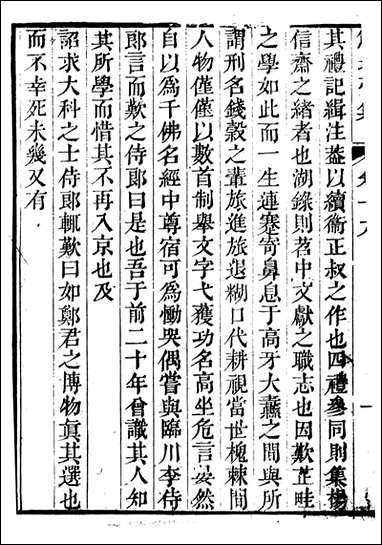 其禮記緝注葢以續衞正叔之作也四禮參同則集楊
信齋之緖者也湖錄則苕中文獻之職志也因歎芷畦
之學如此而一生連蹇寄鼻息于高牙大纛之間與所
謂刑名錢穀之輩旅進旅退糊口代耕視當世槐棘間
人物僅僅以數首制舉文字弋獲功名高坐危言晏然
自以爲千佛名經中尊宿可爲慟哭偶嘗與臨川李侍
郎言而歎之侍郎曰是也吾于前二十年曾識其人知
其所學而惜其不再入京也及
詔求大科之士侍郎輒歎曰如鄭君之博物眞其選也
而不幸死未幾又有